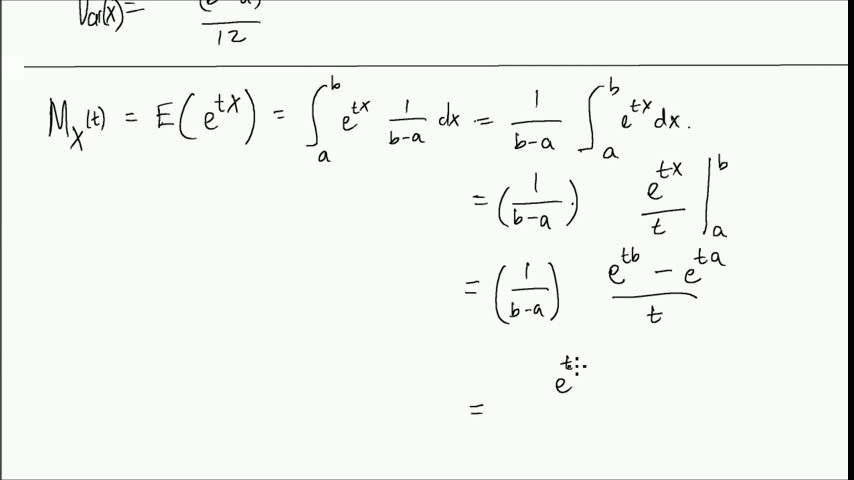 Var(X) = (b-a)² / 12
M_X(t) = E(e^{tX}) = ∫_a^b e^{tx} 1/(b-a) dx = 1/(b-a) ∫_a^b e^{tx} dx.
= (1/(b-a)) e^{tx}/t |_a^b
= (1/(b-a)) (e^{tb} - e^{ta})/t
= e^t